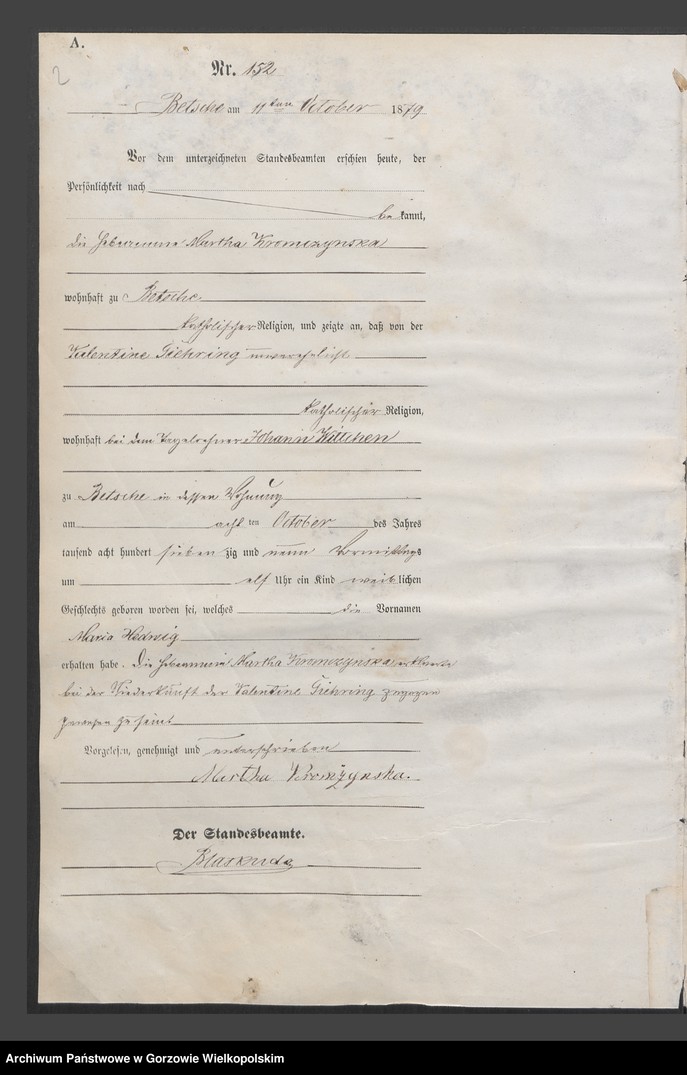 A.
2
Nr. 152
Betsche am 11ten October 1879
Vor dem unterzeichneten Standesbeamten erschien heute, der
Persönlichkeit nach
bekannt,
die Hebamme Martha Kromczynska
wohnhaft zu Betsche
katholischer Religion, und zeigte an, daß von der
Valentine Giehring unverehelicht
katholischer Religion,
wohnhaft bei dem Tagelöhner Johann
zu Betsche in dessen Wohnung
am acht ten October des Jahres
tausend acht hundert sieben zig und neun Vormittags
um elf Uhr ein Kind weiblichen
Geschlechts geboren worden sei, welches die Vornamen
Maria Hedwig
erhalten habe. Die Hebamme Martha Kromczynska erklärte
bei der Niederkunft der Valentine Giehring zugegen
gewesen zu sein
Vorgelesen, genehmigt und unterschrieben
Martha Kromżynska.
Der Standesbeamte.
Archiwum Państwowe w Gorzowie Wielkopolskim